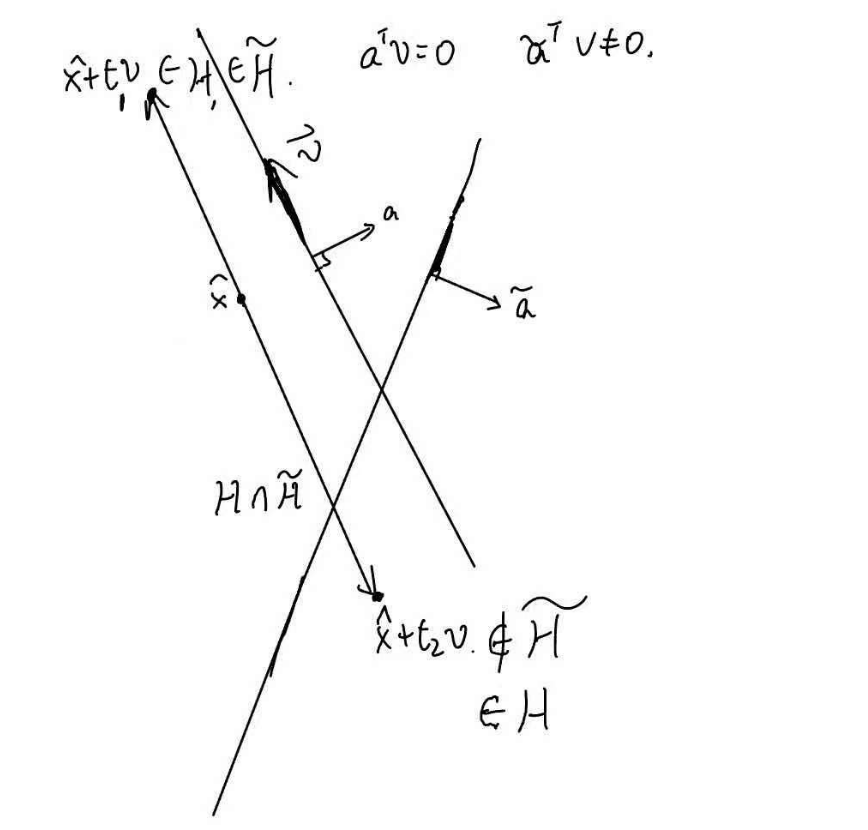 x̂+t₁v ∈ H, ∈ H̃. aᵀv=0 ãᵀv≠0.
v
a
x̂
ã
H∩H̃
x̂+t₂v. ∉ H̃
∈ H